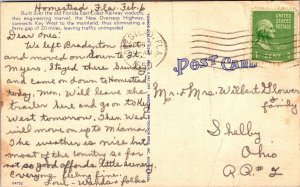 Homestead, Fla Feb. 6
Built over the old Florida East Coast Railway viaducts,
this engineering marvel, the New Overseas Highway,
connects Key West to the mainland, thus eliminating a
ferry gap of 20 miles, leaving traffic unimpeded
Dear Ones:
We left Bradenton
and moved on down to Ft.
Myers. Stayed there Sunday
and came on down to Homestead
today. Mon. Will leave the
trailer here and go on to Key
West tomorrow. Then Wed.
will move on up to Miami.
The weather is nice but
most of the country so far
not so good affords little scenery
Everyone feeling fine.
Love - Wanda's folks
POST CARD
1 CENT 1
Mr. & Mrs. Willet Glower
& family
Shelby
Ohio
R.D. # 2